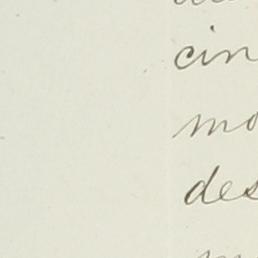 cin
mo
des